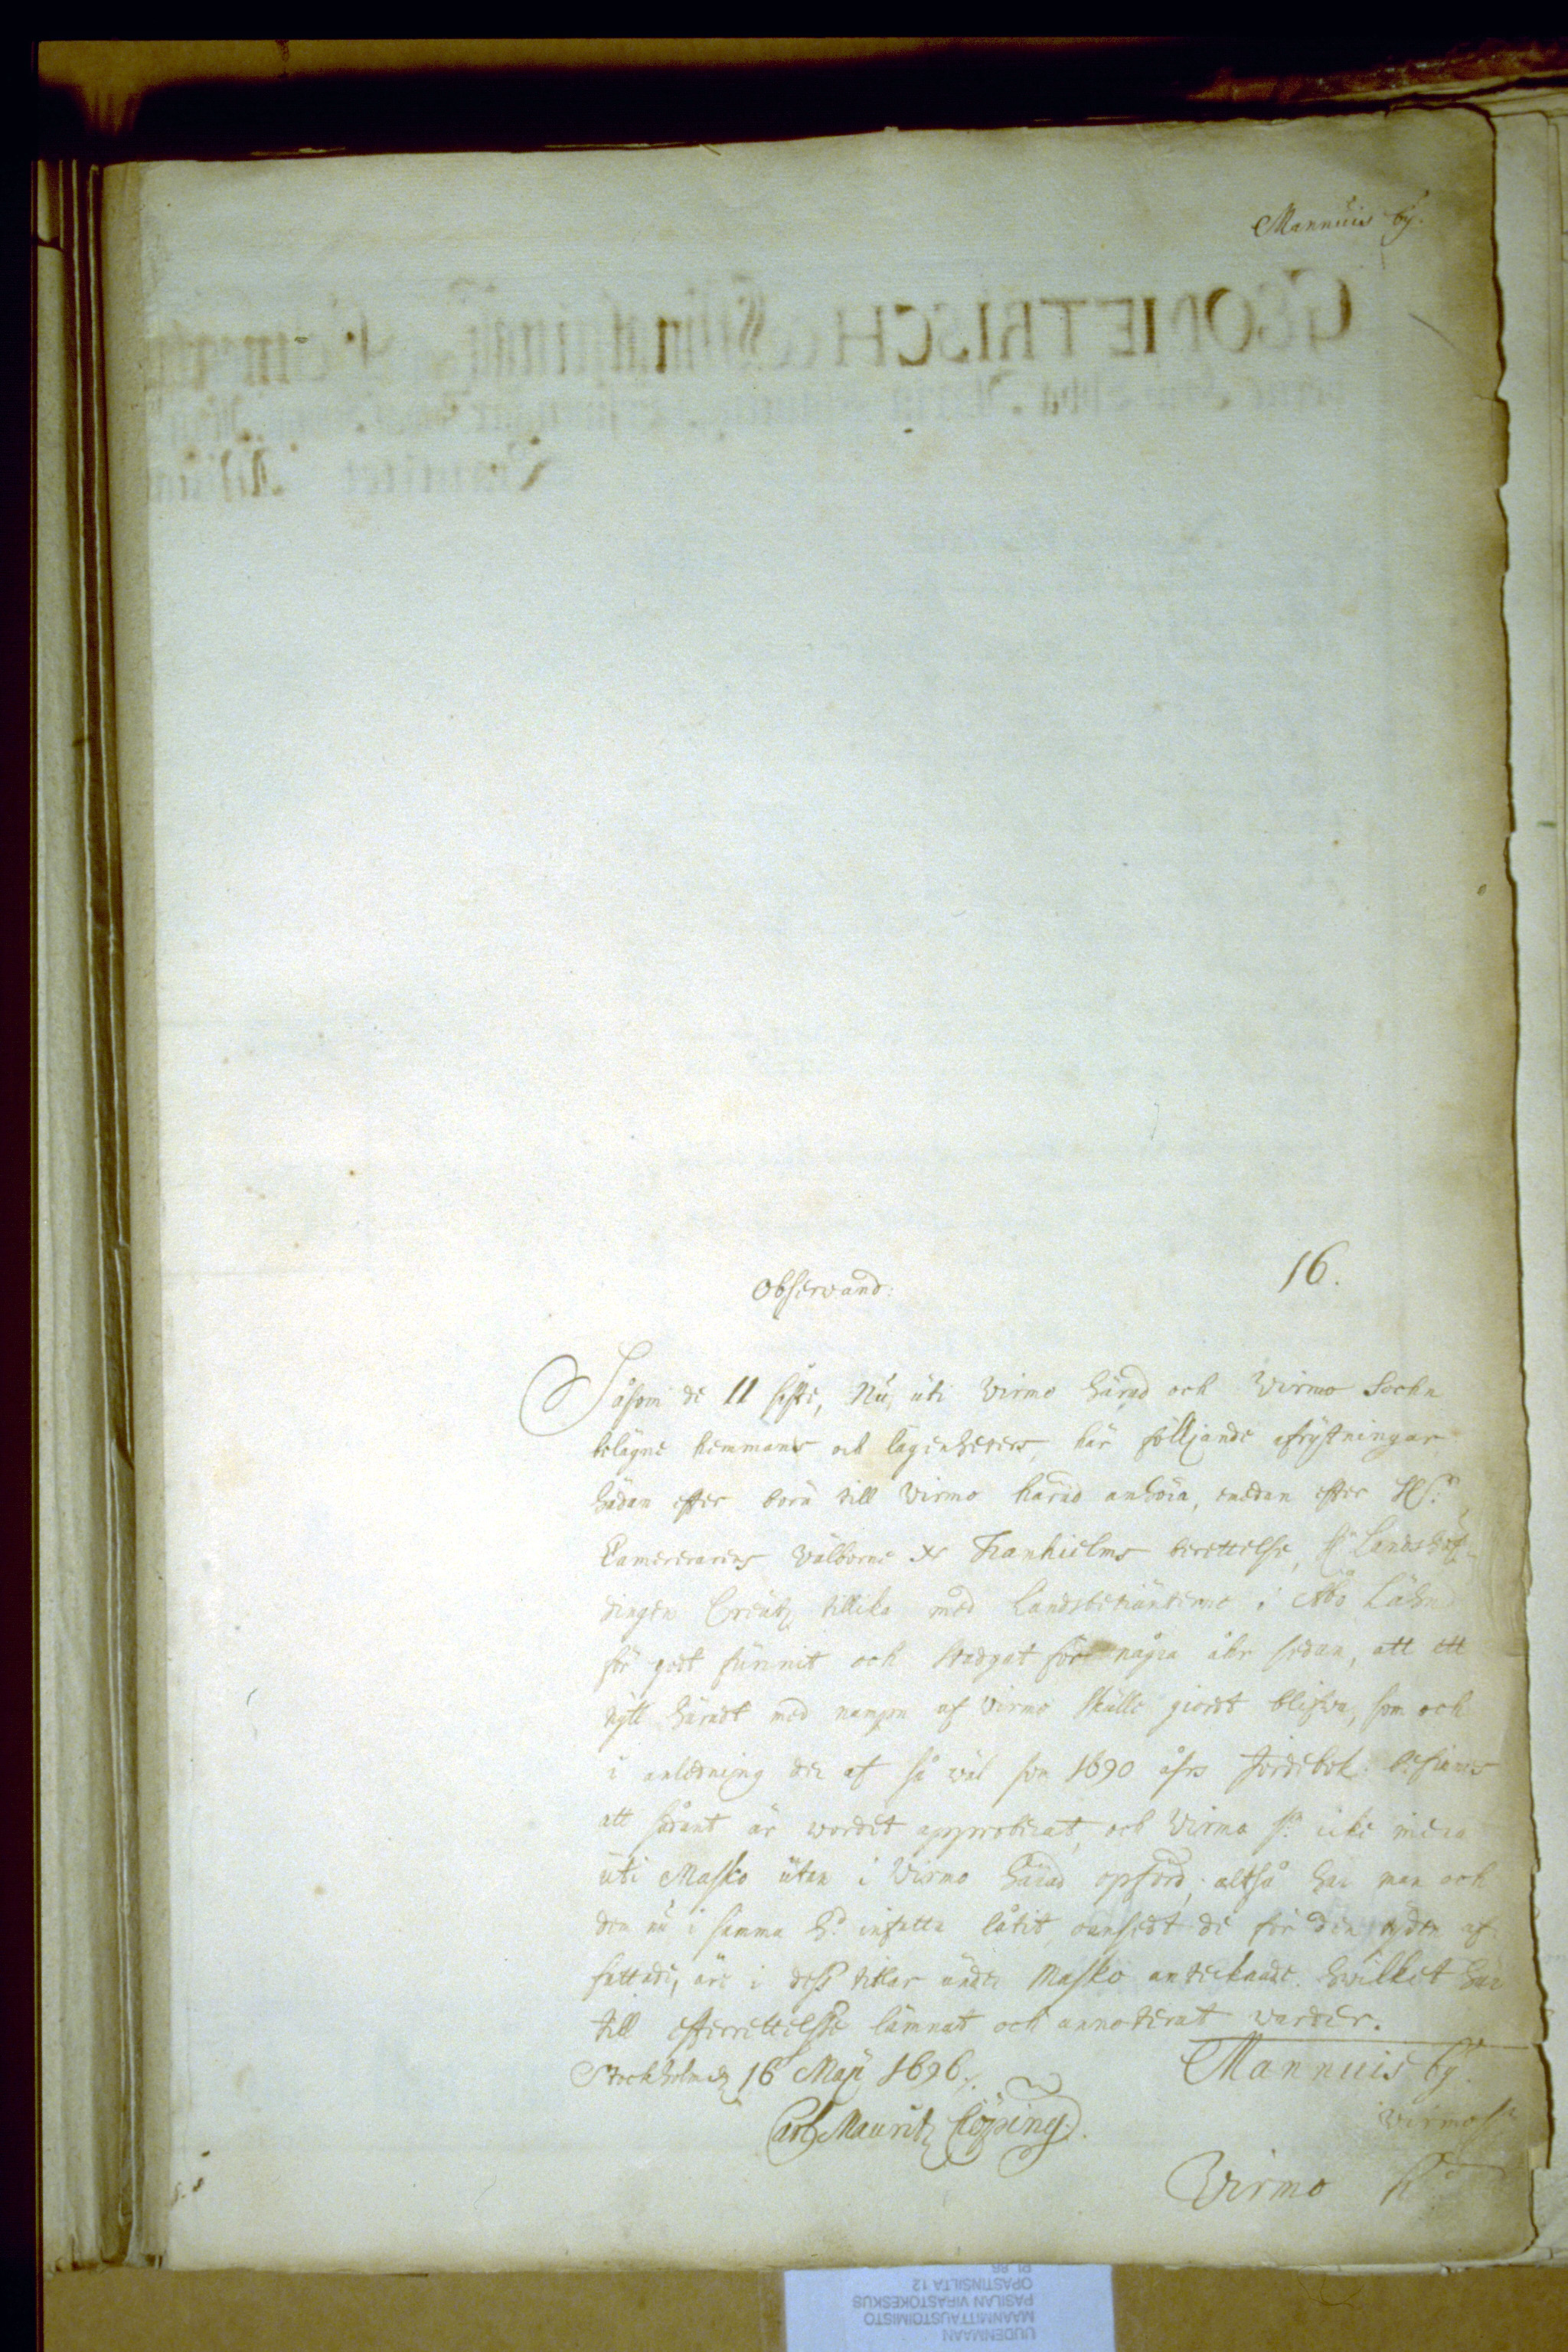 Mannuis by.
GEOMETRISCH
16.
Observand:
Såsom de 11 sidste, Nu, uti Virmo härad och Virmo Sochn
belägne hemmans och lägenheters, här föllljande afrijtningar
hädan efter böra till Virmo härad anhöra, emedan efter H:r
Camererarens Wälborne H:r Franhielms berettelse, H:r Landshöf-
dingen Creutz tillika med Landsbetiänterne i Åbo Lähn
för godt funnit och stadgat för några åhr sedan, att ett
nytt häradt med nampn af Virmo skulle giordt blifwa, som och
i anledning der af så wäl som 1690 åhrs Jordebok befinnes
att sådant är wordet approberat, och Virmo S:n icke mera
uti Masko utan i Virmo härad opförd; altså har man och
den nu i samma H:d infatta låtit, oansedt de för den tyden af-
fattade, äre i dess titlar under Masko anteknade. Hwilket här
till efterrettelse lämnat och annoterat warder.
Stockholm d 16 Maji 1696.
Carl Mauritz Cöping.
Mannuis by.
Virmo S:n
Virmo H:d
UUDENMAAN
MAANMITTAUSTOIMISTO
PASILAN VIRASTOKESKUS
OPASTINSILTA 12